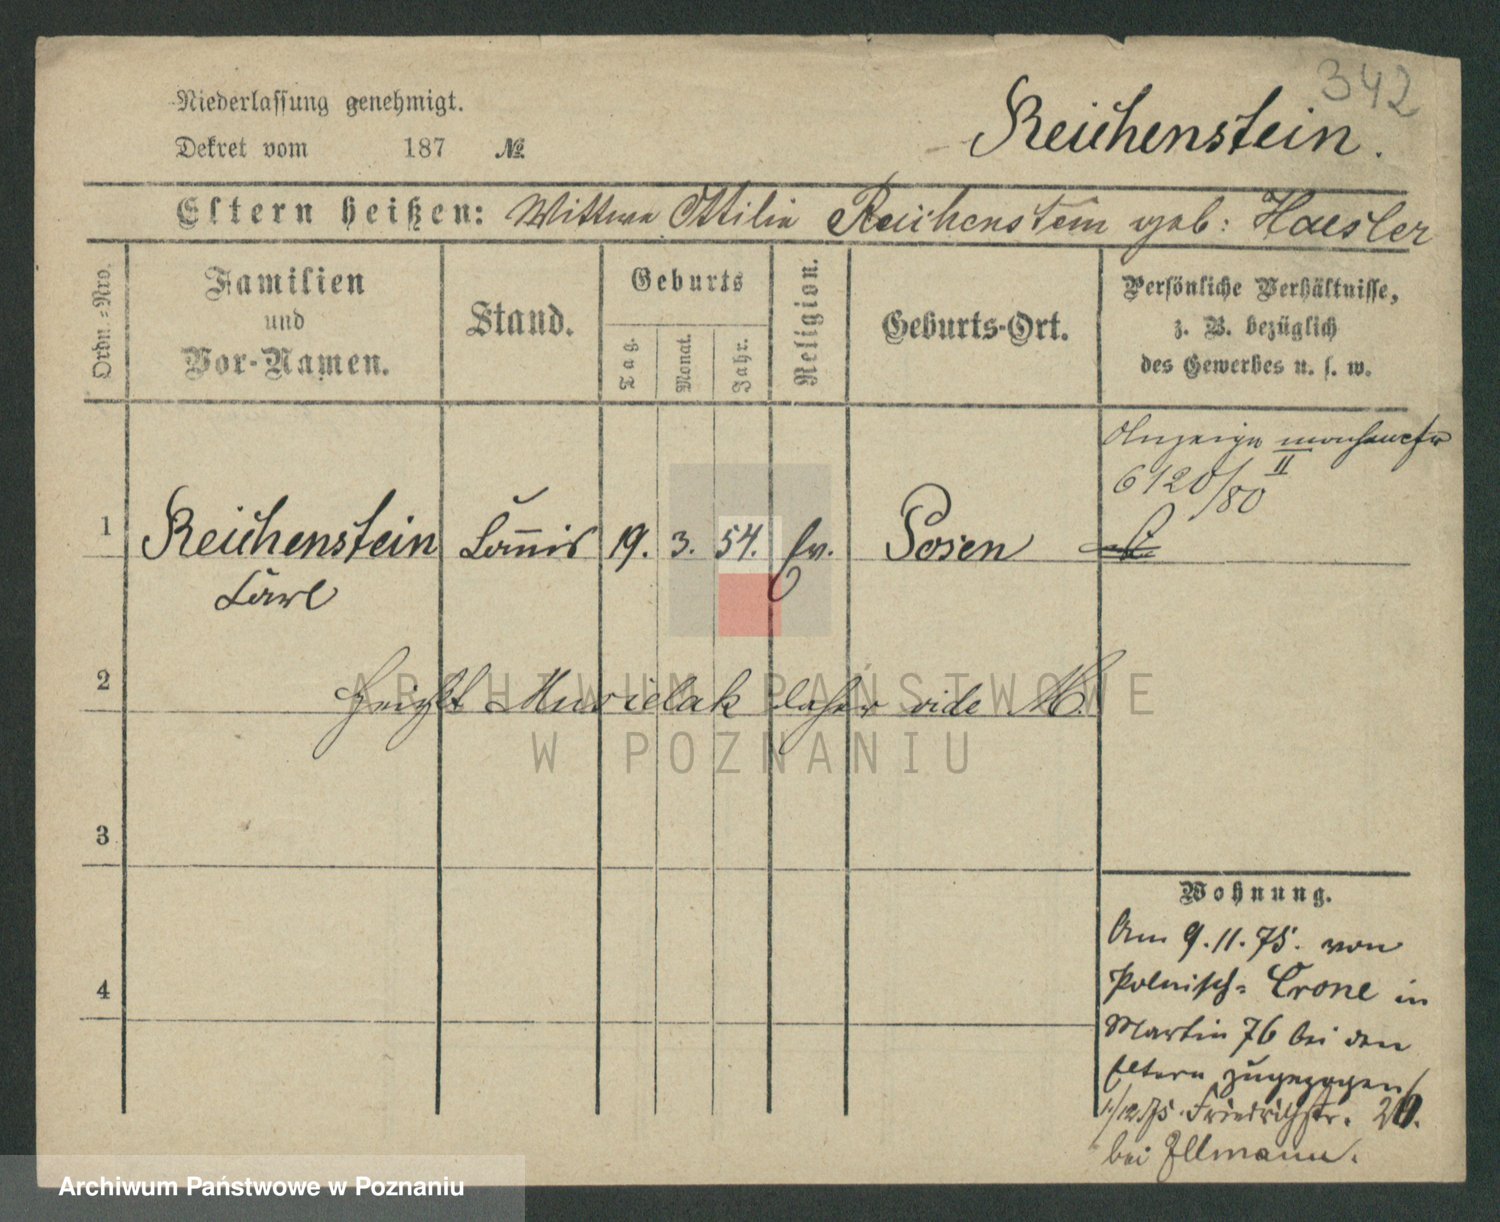 342
Niederlassung genehmigt.
Dekret vom 187 №
Reichenstein.
Eltern heißen: Wittwe Ottilie Reichenstein geb: Haesler
Ordn.=Nro.
Familien und Vor-Namen.
Stand.
Geburts
Tag.
Monat.
Jahr.
Religion.
Geburts-Ort.
Persönliche Verhältnisse,
z. B. bezüglich
des Gewerbes u. s. w.
Anzeige
6120/80 II
1 Reichenstein Comis 19. 3. 54. Ev. Posen
Carl
2 heißt Musielak daher vide M.
3
Wohnung.
Am 9.11.75. von
4 Polnisch= Crone in
Martin 76 bei den
Eltern zugezogen
1/12.75. Friedrichstr. 20.
bei Illmann.
ARCHIWUM PAŃSTWOWE
W POZNANIU
Archiwum Państwowe w Poznaniu